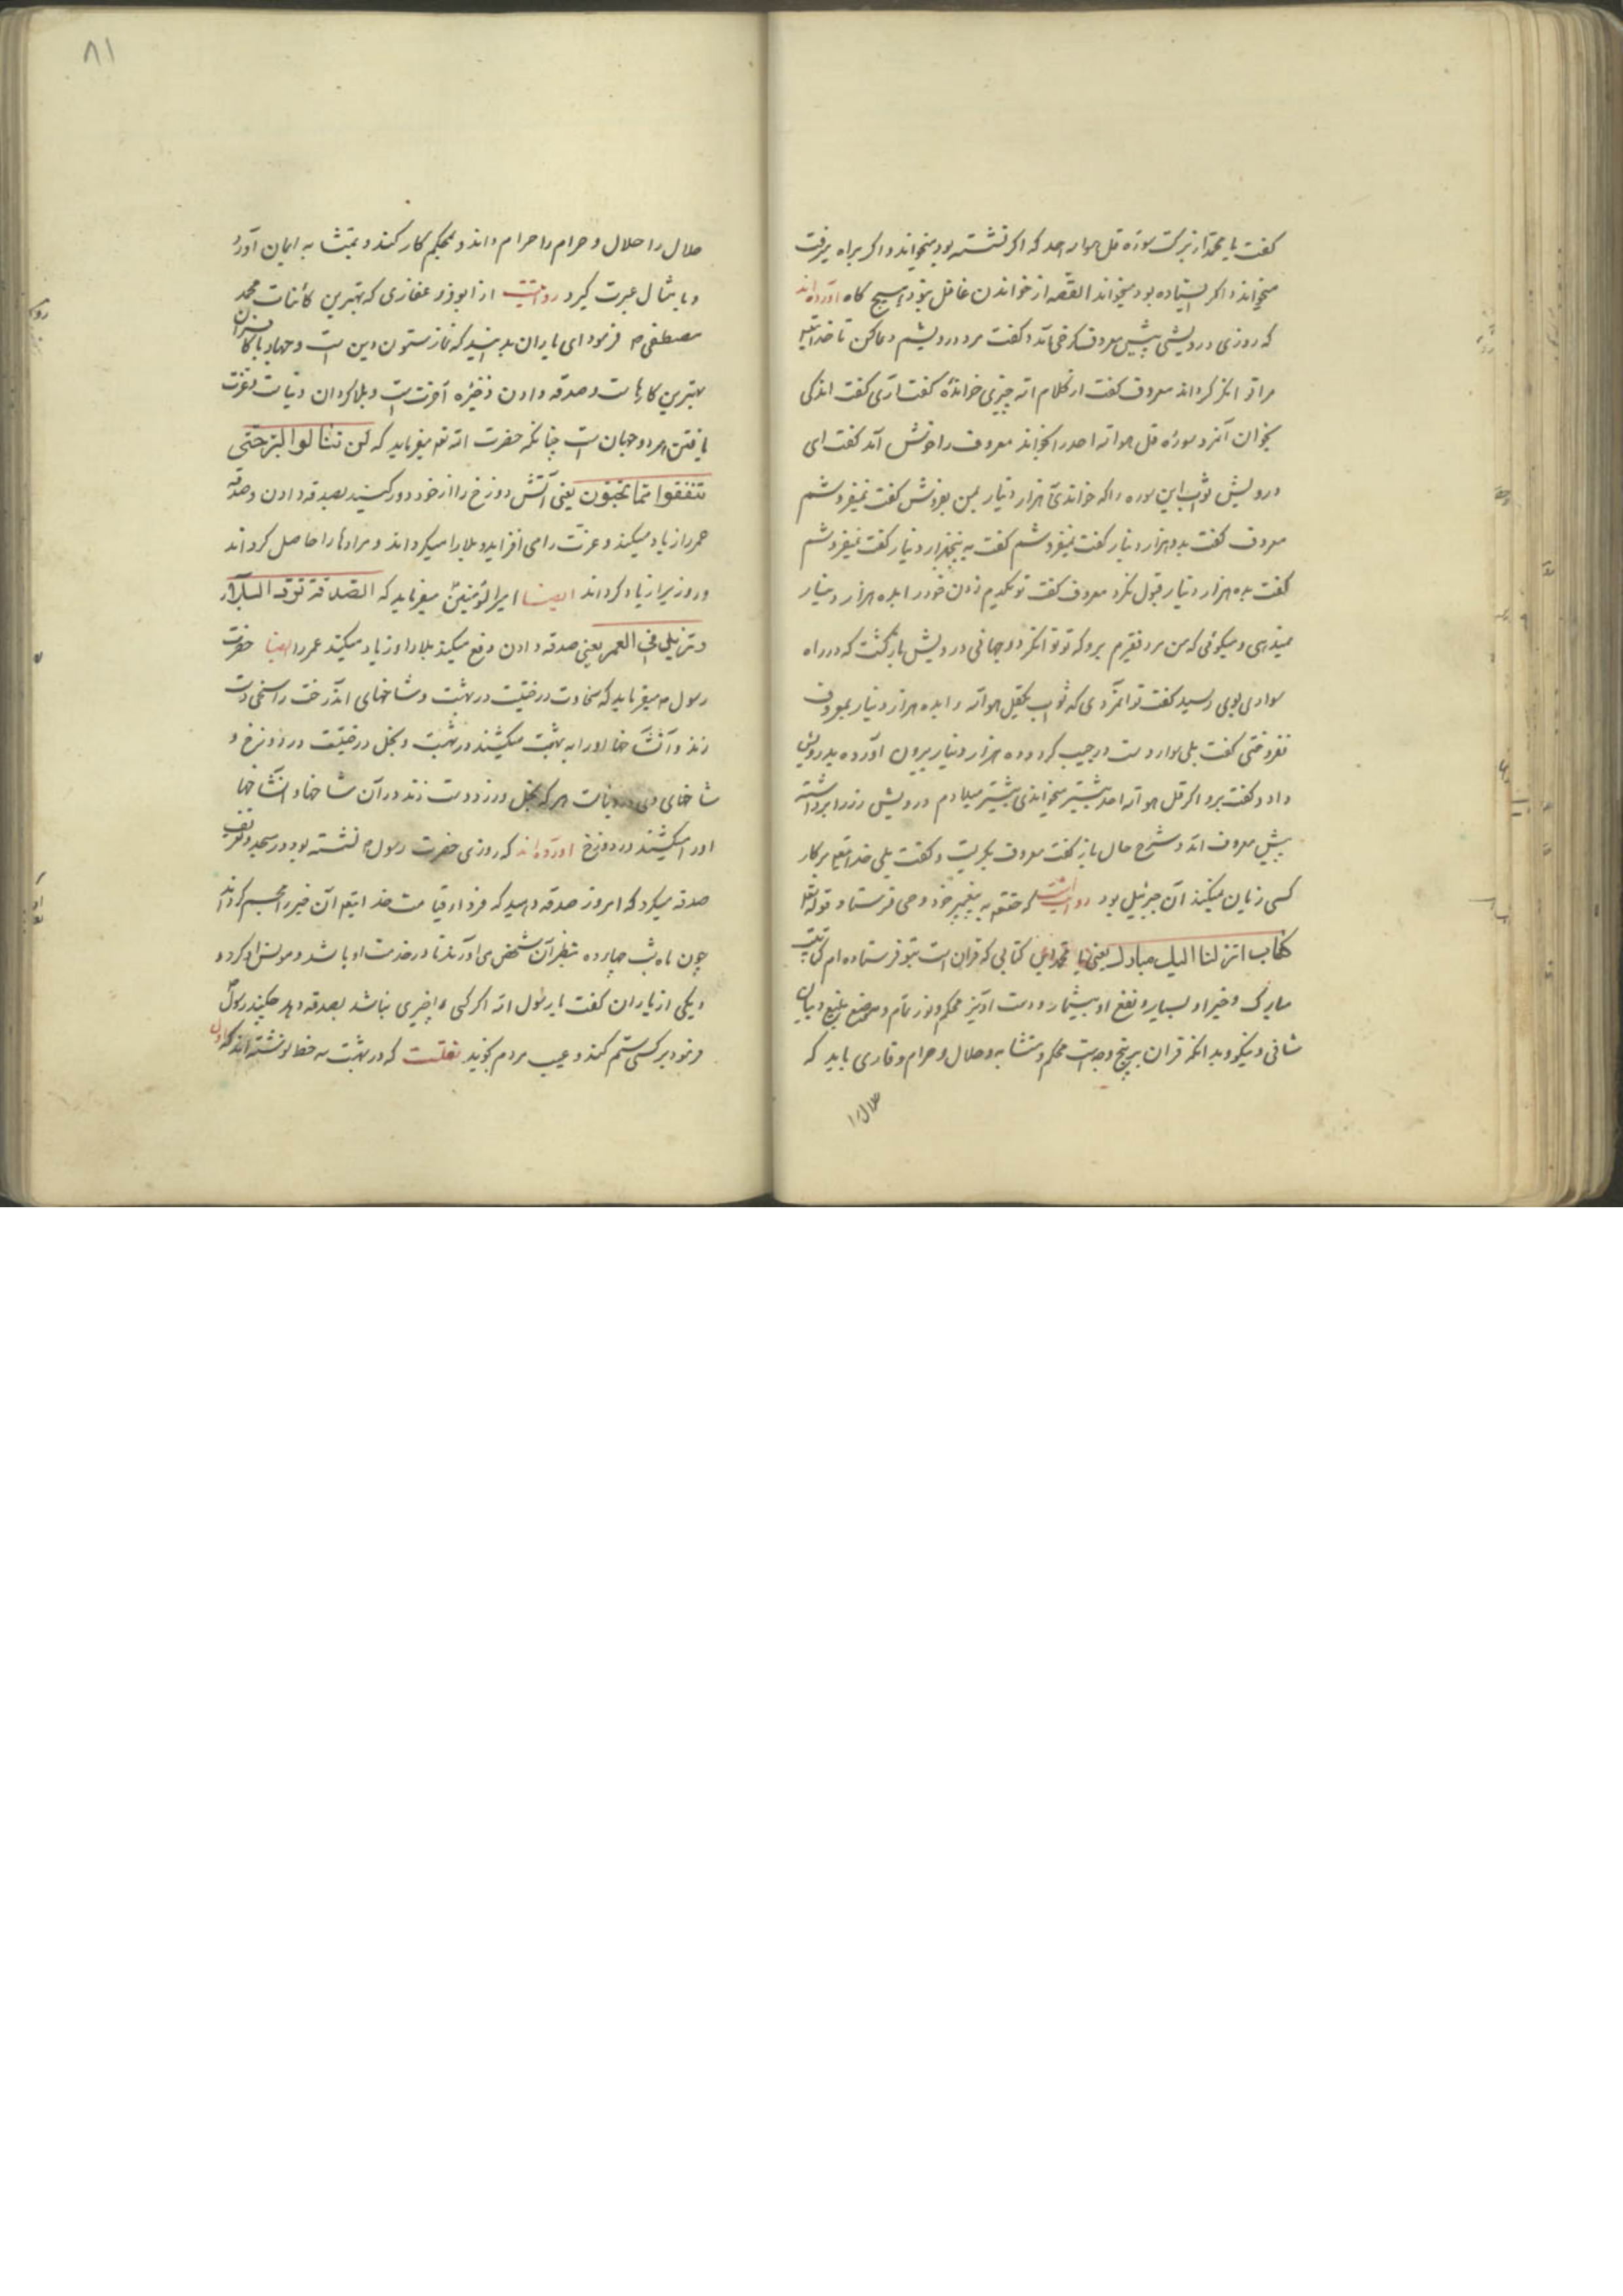 کفت یا محمد از برکت سوره قل هو الله احد که اکر نشسته بود میخواند و اکر براه میرفت
میخواند و اکر ایستاده بود میخواند القصه از خواندن غافل نبود هیچ کاه آورده اند
که روزی درویشی پیش معروف کرخی آمد و کفت مرد درویشم دعا کن تا خدایتعالی
مرا توانکر کرداند معروف کفت از کلام الله چیزی خوانده کفت آری کفت اندکی
بخوان آنمرد سوره قل هو الله احد را بخواند معروف را خوش آمد کفت ای
درویش ثواب این سوره را که خواندی هزار دینار بمن بفروش کفت نمیفروشم
معروف کفت بدو هزار دینار کفت نمیفروشم کفت به پنجهزار دینار کفت نمیفروشم
کفت بده هزار دینار قبول نکرد معروف کفت تو یکدم زدن خود را بده هزار دینار
نمیدهی و میکوئی که من مرد فقیرم برو که تو توانکر دو جهانی درویش بازکشت که در راه
سواری بوی رسید کفت تو آنمردی که ثواب یک قل هو الله را بده هزار دینار بمعروف
نفروختی کفت بلی سوار دست در جیب کرد و ده هزار دینار بیرون آورده بدرویش
داد و کفت برو اکر قل هو الله احد بیشتر میخواندی بیشتر میدادم درویش زر را برداشته
پیش معروف آمد و شرح حال باز کفت معروف بکریست و کفت بلی خدایتعالی بر کار
کسی زیان نمیکند آن جبرئیل بود روایتست که حقتعالی به پیغمبر خود وحی فرستاد قوله تعالی
کتاب انزلنا الیک مبارک یعنی یا محمد این کتابی که قرآن است بتو فرستاده ام کتابیست
مبارک و خیر او بسیار و نفع او بیشمار و دست آویز محکم و نور تمام و بلیغ و بیان
شافی و نیکو و بدانکه قرآن بر پنج وجه است محکم و متشابه و حلال و حرام و قاری باید که
حلال را
۸۱
حلال را حلال و حرام را حرام داند و بمحکم کار کند و بمتشابه ایمان آورد
و بامثال عبرت کیرد روایتست از ابوذر غفاری که بهترین کائنات محمد
مصطفی ص فرمود ای یاران بدانید که نماز ستون دین است و جهاد با کافران
بهترین کارهاست و صدقه دادن ذخیره آخرت است و بلا کردان دنیاست و عزت
یافتن هر دو جهان است چنانکه حضرت الله تعالی میفرماید که لن تنالوا البر حتی
تنفقوا مما تحبون یعنی آتش دوزخ را از خود دور کنید بصدقه دادن و صدقه
عمر را زیاد میکند و عزت را می افزاید و بلا را میکرداند و مرادها را حاصل کرداند
و روزیرا زیاد کرداند ایضا امیرالمؤمنین میفرماید که الصدقة ترد البلاء
و تزید فی العمر یعنی صدقه دادن دفع میکند بلا را و زیاد میکند عمر را ایضا حضرت
رسول ص میفرماید که سخاوت درختیست در بهشت و شاخهای آندرخت را سخی دست
زند و آنشاخها او را به بهشت میکشند در بهشت و بخل درختیست در دوزخ و
شاخهای وی در دنیاست هر که بخل ورزد دست زند در آن شاخها و آنشاخها
او را میکشند در دوزخ آورده اند که روزی حضرت رسول ص نشسته بود در مسجد و تعریف
صدقه میکرد که امروز صدقه دهید که فردا قیامت خدایتعالی آن خیر را مجسم کرداند
چون ماه شب چهارده بنظر آن شخص می آورند تا در خدمت او باشد و مونس او کردد
و یکی از یاران کفت یا رسول الله اکر کسی را چیزی نباشد بصدقه دهد چکند رسول
فرمود بر کسی ستم نکند و عیب مردم نجوید نقلست که در بهشت سه خط نوشته اند که اول